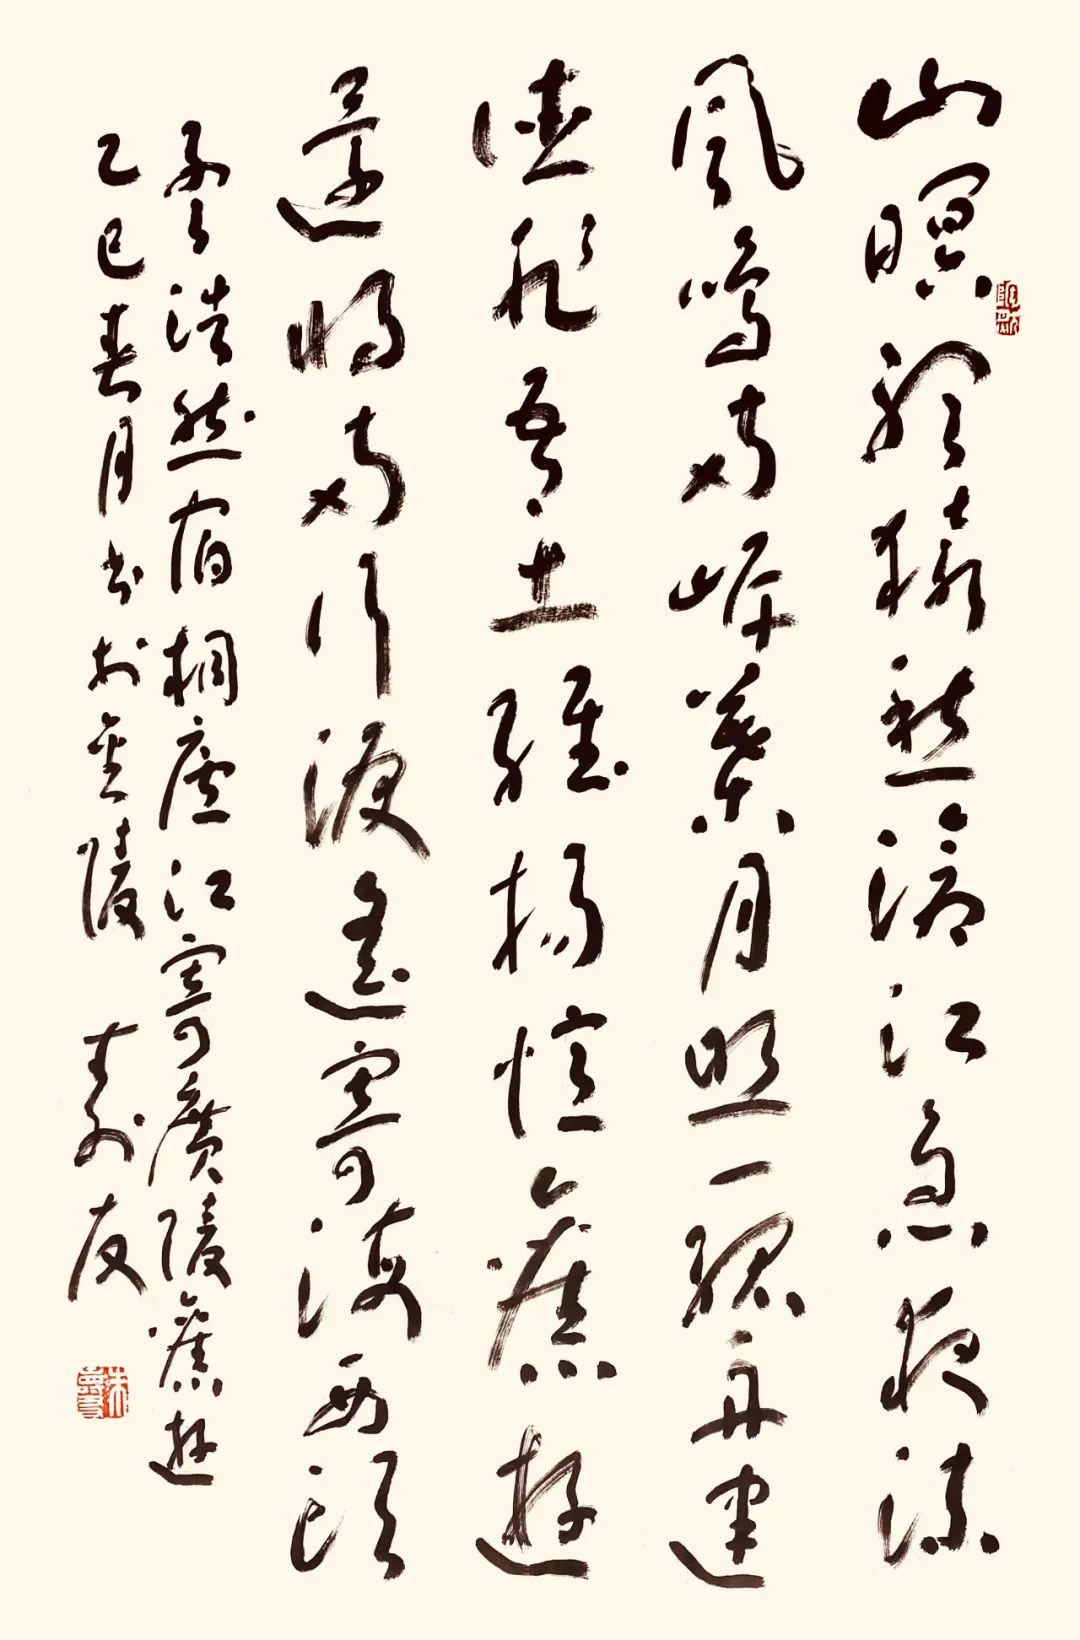 山暝聽猿愁滄江急夜流
風鳴兩岸葉月照一孤舟建
德非吾土維揚憶舊遊
還將兩行淚遙寄海西頭
孟浩然宿桐廬江寄廣陵舊遊
乙巳春月書於金陵 壽友